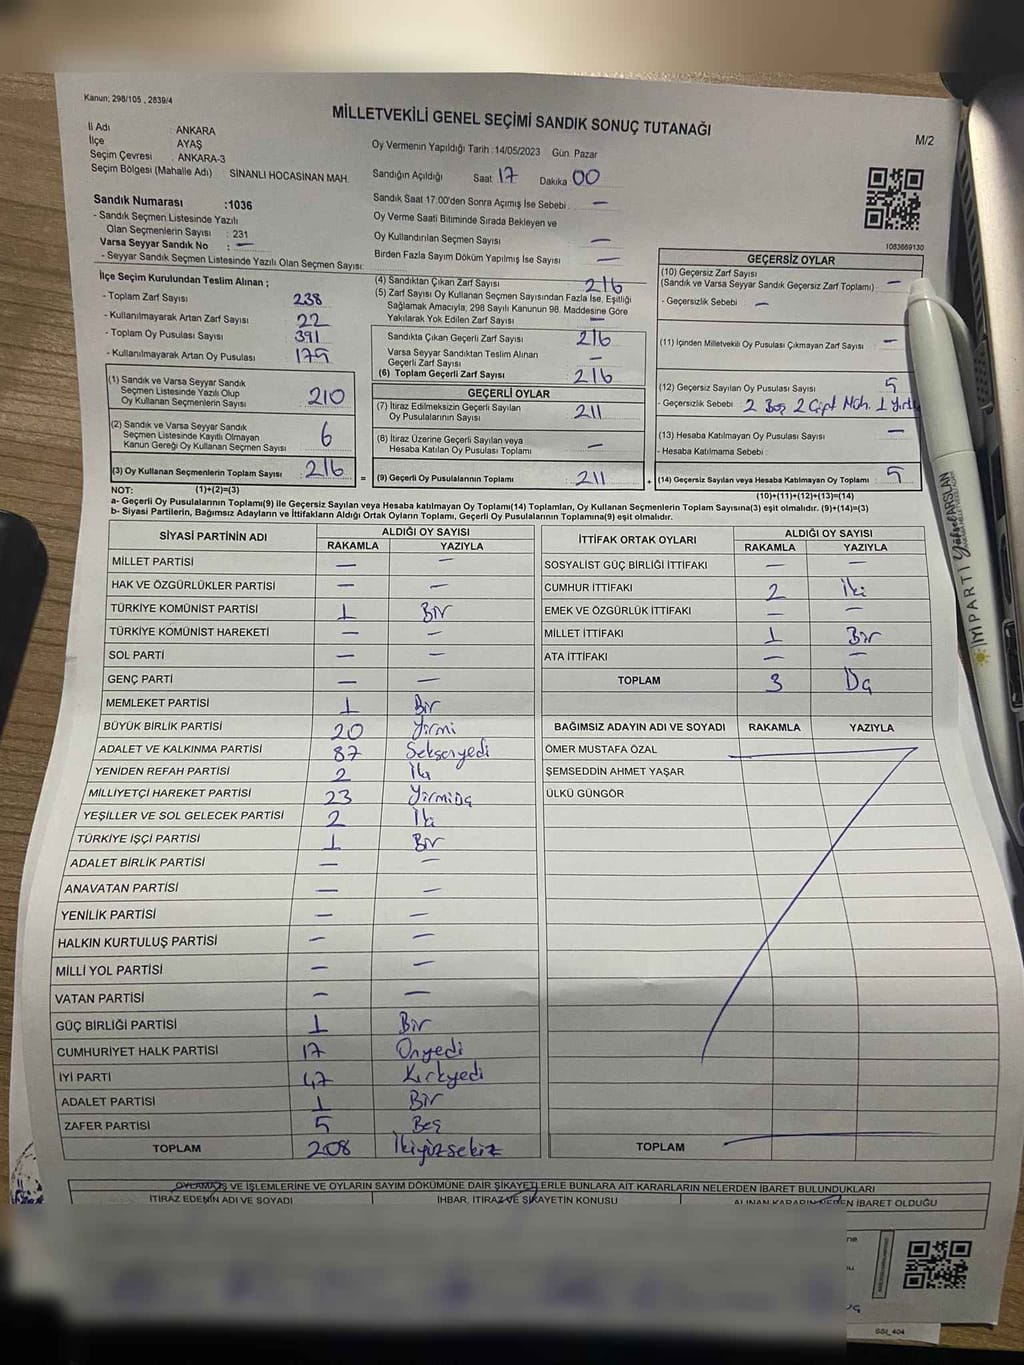 Kanun: 298/105 , 2839/4
MİLLETVEKİLİ GENEL SEÇİMİ SANDIK SONUÇ TUTANAĞI
M/2
İl Adı : ANKARA
İlçe : AYAŞ
Seçim Çevresi : ANKARA-3
Seçim Bölgesi (Mahalle Adı) SİNANLI HOCASİNAN MAH.
Oy Vermenin Yapıldığı Tarih :14/05/2023 Gün: Pazar
Sandığın Açıldığı Saat 17 Dakika 00
Sandık Saat 17.00'den Sonra Açımış İse Sebebi : —
Oy Verme Saati Bitiminde Sırada Bekleyen ve
Oy Kullandırılan Seçmen Sayısı —
Birden Fazla Sayım Döküm Yapılmış İse Sayısı —
Sandık Numarası :1036
- Sandık Seçmen Listesinde Yazılı
Olan Seçmenlerin Sayısı : 231
Varsa Seyyar Sandık No : —
- Seyyar Sandık Seçmen Listesinde Yazılı Olan Seçmen Sayısı:
1083669130
İlçe Seçim Kurulundan Teslim Alınan ;
- Toplam Zarf Sayısı 238
- Kullanılmayarak Artan Zarf Sayısı 22
- Toplam Oy Pusulası Sayısı 391
- Kullanılmayarak Artan Oy Pusulası 175
(1) Sandık ve Varsa Seyyar Sandık
Seçmen Listesinde Yazılı Olup
Oy Kullanan Seçmenlerin Sayısı 210
(2) Sandık ve Varsa Seyyar Sandık
Seçmen Listesinde Kayıtlı Olmayan
Kanun Gereği Oy Kullanan Seçmen Sayısı 6
(3) Oy Kullanan Seçmenlerin Toplam Sayısı 216
(4) Sandıktan Çıkan Zarf Sayısı 216
(5) Zarf Sayısı Oy Kullanan Seçmen Sayısından Fazla İse, Eşitliği
Sağlamak Amacıyla, 298 Sayılı Kanunun 98. Maddesine Göre
Yakılarak Yok Edilen Zarf Sayısı —
Sandıkta Çıkan Geçerli Zarf Sayısı 216
Varsa Seyyar Sandıktan Teslim Alınan
Geçerli Zarf Sayısı —
(6) Toplam Geçerli Zarf Sayısı 216
GEÇERLİ OYLAR
(7) İtiraz Edilmeksizin Geçerli Sayılan
Oy Pusulalarının Sayısı 211
(8) İtiraz Üzerine Geçerli Sayılan veya
Hesaba Katılan Oy Pusulası Toplamı —
= (9) Geçerli Oy Pusulalarının Toplamı 211
GEÇERSİZ OYLAR
(10) Geçersiz Zarf Sayısı
(Sandık ve Varsa Seyyar Sandık Geçersiz Zarf Toplamı) —
- Geçersizlik Sebebi : —
(11) İçinden Milletvekili Oy Pusulası Çıkmayan Zarf Sayısı —
(12) Geçersiz Sayılan Oy Pusulası Sayısı 5
- Geçersizlik Sebebi : 2 Boş 2 Çift Müh. 1 Yırtık
(13) Hesaba Katılmayan Oy Pusulası Sayısı —
- Hesaba Katılmama Sebebi :
+ (14) Geçersiz Sayılan veya Hesaba Katılmayan Oy Toplamı : 5
NOT: (1)+(2)=(3)
(10)+(11)+(12)+(13)=(14)
a- Geçerli Oy Pusulalarının Toplamı(9) ile Geçersiz Sayılan veya Hesaba katılmayan Oy Toplamı(14) Toplamları, Oy Kullanan Seçmenlerin Toplam Sayısına(3) eşit olmalıdır. (9)+(14)=(3)
b- Siyasi Partilerin, Bağımsız Adayların ve İttifakların Aldığı Ortak Oyların Toplamı, Geçerli Oy Pusulalarının Toplamına(9) eşit olmalıdır.
SİYASİ PARTİNİN ADI ALDIĞI OY SAYISI
RAKAMLA YAZIYLA
MİLLET PARTİSİ — —
HAK VE ÖZGÜRLÜKLER PARTİSİ — —
TÜRKİYE KOMÜNİST PARTİSİ 1 Bir
TÜRKİYE KOMÜNİST HAREKETİ — —
SOL PARTİ — —
GENÇ PARTİ — —
MEMLEKET PARTİSİ 1 Bir
BÜYÜK BİRLİK PARTİSİ 20 Yirmi
ADALET VE KALKINMA PARTİSİ 87 Seksenyedi
YENİDEN REFAH PARTİSİ 2 İki
MİLLİYETÇİ HAREKET PARTİSİ 23 Yirmiüç
YEŞİLLER VE SOL GELECEK PARTİSİ 2 İki
TÜRKİYE İŞÇİ PARTİSİ 1 Bir
ADALET BİRLİK PARTİSİ — —
ANAVATAN PARTİSİ — —
YENİLİK PARTİSİ — —
HALKIN KURTULUŞ PARTİSİ — —
MİLLİ YOL PARTİSİ — —
VATAN PARTİSİ — —
GÜÇ BİRLİĞİ PARTİSİ 1 Bir
CUMHURİYET HALK PARTİSİ 17 Onyedi
İYİ PARTİ 47 Kırkyedi
ADALET PARTİSİ 1 Bir
ZAFER PARTİSİ 5 Beş
TOPLAM 208 İkiyüzsekiz
İTTİFAK ORTAK OYLARI ALDIĞI OY SAYISI
RAKAMLA YAZIYLA
SOSYALİST GÜÇ BİRLİĞİ İTTİFAKI — —
CUMHUR İTTİFAKI 2 İki
EMEK VE ÖZGÜRLÜK İTTİFAKI — —
MİLLET İTTİFAKI 1 Bir
ATA İTTİFAKI — —
TOPLAM 3 Üç
BAĞIMSIZ ADAYIN ADI VE SOYADI RAKAMLA YAZIYLA
ÖMER MUSTAFA ÖZAL
ŞEMSEDDİN AHMET YAŞAR
ÜLKÜ GÜNGÖR
TOPLAM
OYLAMA İŞ VE İŞLEMLERİNE VE OYLARIN SAYIM DÖKÜMÜNE DAİR ŞİKAYETLERLE BUNLARA AİT KARARLARIN NELERDEN İBARET BULUNDUKLARI
İTİRAZ EDENİN ADI VE SOYADI İHBAR, İTİRAZ VE ŞİKAYETİN KONUSU ALINAN KARARIN NEDEN İBARET OLDUĞU
SSI_404
İYİ PARTİ Yüksel ARSLAN